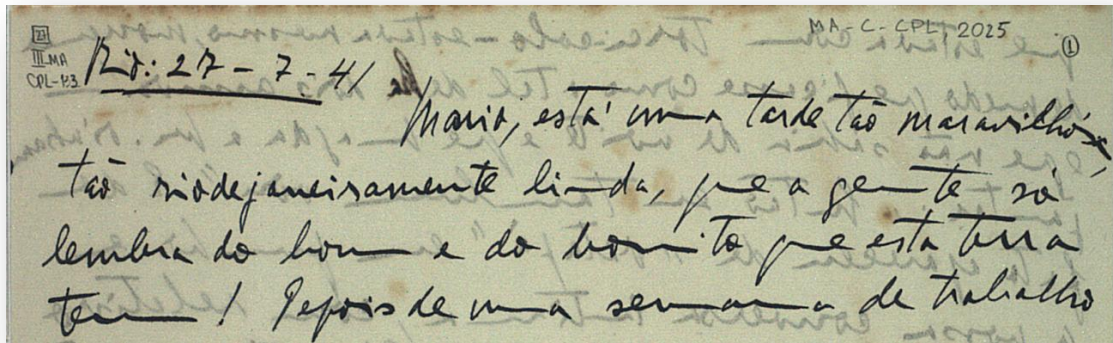 27
III MA
CPL-113
MA-C-CPL, 2025
1
Rio: 27-7-41
Mario, está uma tarde tão maravilhosa,
tão riodejaneiramente linda, que a gente só
lembra do bom e do bonito que esta terra
tem! Depois de uma semana de trabalho